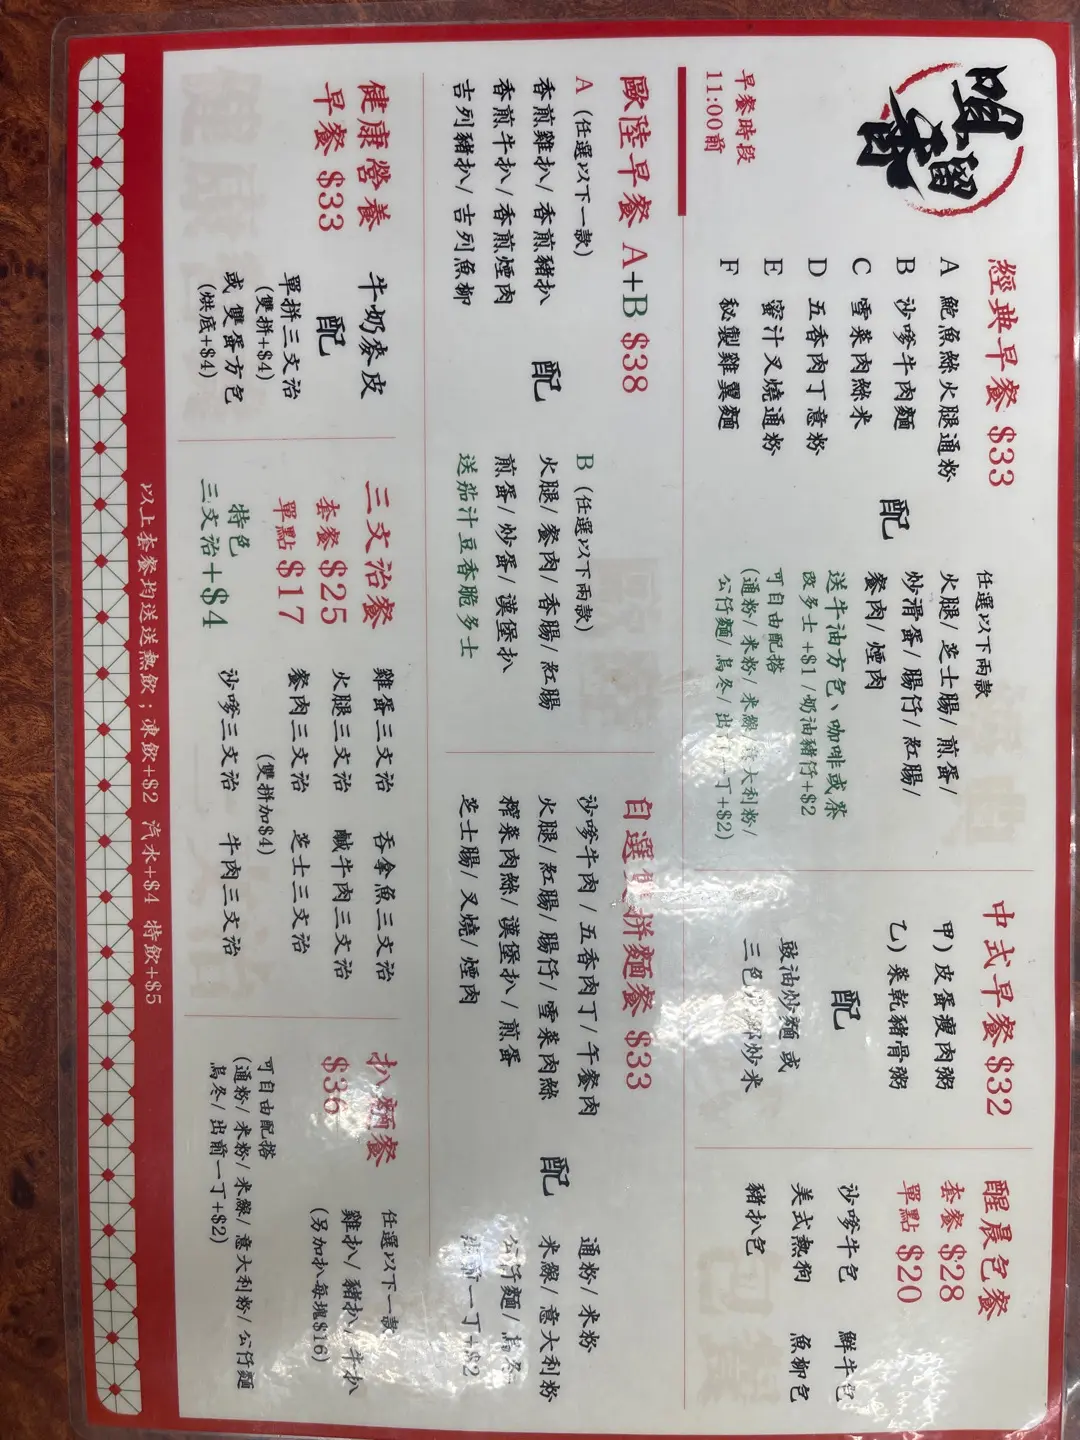 咀留香
早餐時段
11:00前
經典早餐 $33
A 鮑魚絲火腿通粉
B 沙嗲牛肉麵
C 雪菜肉絲米
D 五香肉丁意粉
E 蜜汁叉燒通粉
F 秘製雞翼麵
配
任選以下兩款
火腿/ 芝士腸/ 煎蛋/
炒滑蛋/ 腸仔/ 紅腸/
餐肉/ 煙肉
送牛油方包、咖啡或茶
改多士 +$1 /奶油豬仔+$2
可自由配搭
(通粉/ 米粉/ 米線/ 意大利粉/
公仔麵/ 烏冬/ 出前一丁+$2)
中式早餐 $32
甲) 皮蛋瘦肉粥
乙) 菜乾豬骨粥
配
豉油炒麵 或
三色 炒米
醒晨包餐
套餐 $28
單點 $20
沙嗲牛包 鮮牛包
美式熱狗 魚柳包
豬扒包
歐陸早餐 A+B $38
A (任選以下一款)
香煎雞扒/ 香煎豬扒
香煎牛扒/ 香煎煙肉
吉列豬扒/ 吉列魚柳
配
B (任選以下兩款)
火腿/ 餐肉/ 香腸/ 紅腸
煎蛋/ 炒蛋/ 漢堡扒
送茄汁豆香脆多士
自選雙拼麵餐 $33
沙嗲牛肉 / 五香肉丁/ 午餐肉
火腿/ 紅腸/ 腸仔/ 雪菜肉絲
榨菜肉絲/ 漢堡扒 / 煎蛋
芝士腸/ 叉燒/ 煙肉
配
通粉/ 米粉
米線/ 意大利粉
公仔麵/ 烏冬
出前一丁+$2
健康營養
早餐 $33
牛奶麥皮
配
單拼三文治
(雙拼+$4)
或 雙蛋方包
(烘底+$4)
三文治餐
套餐 $25
單點 $17
特色
三文治+$4
雞蛋三文治 吞拿魚三文治
火腿三文治 鹹牛肉三文治
餐肉三文治 芝士三文治
(雙拼加$4)
沙嗲三文治 牛肉三文治
扒麵餐
$36
任選以下一款
雞扒/ 豬扒/ 牛扒
(另加扒每塊$16)
可自由配搭
(通粉/ 米粉/ 米線/ 意大利粉/ 公仔麵
烏冬/ 出前一丁+$2)
以上套餐均送送熱飲；凍飲+$2 汽水+$4 特飲+$5